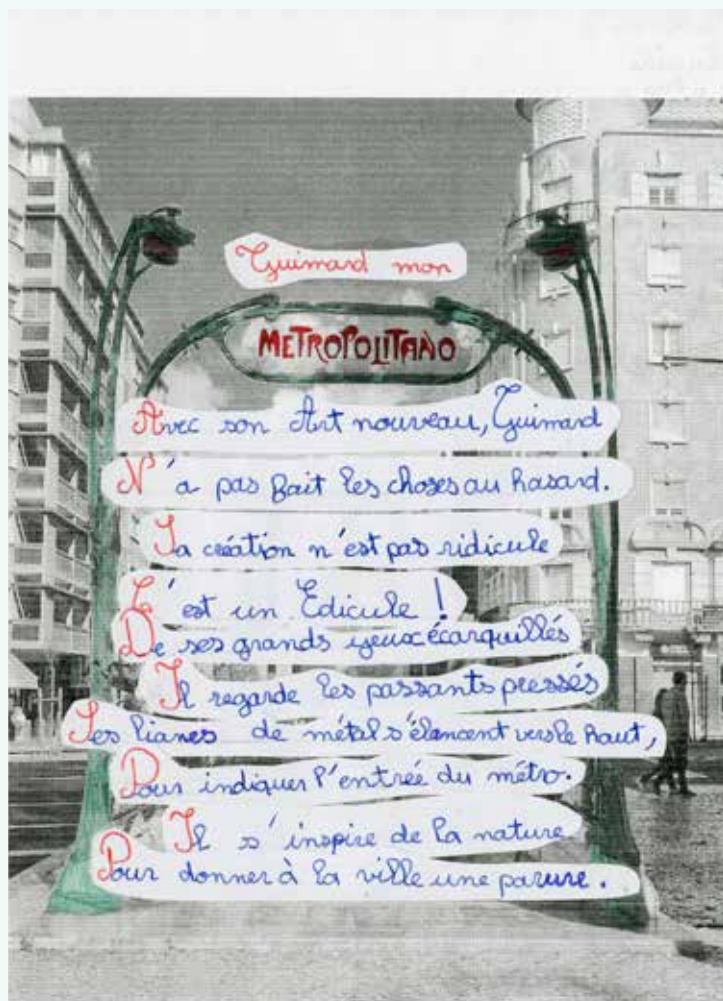 Guimard mon
METROPOLITANO
Avec son Art nouveau, Guimard
N'a pas fait les choses au hasard.
Sa création n'est pas ridicule
C'est un Édicule !
De ses grands yeux écarquillés
Il regarde les passants pressés
Ses lianes de métal s'élancent vers le haut,
Pour indiquer l'entrée du métro.
Il s'inspire de la nature
Pour donner à la ville une parure.